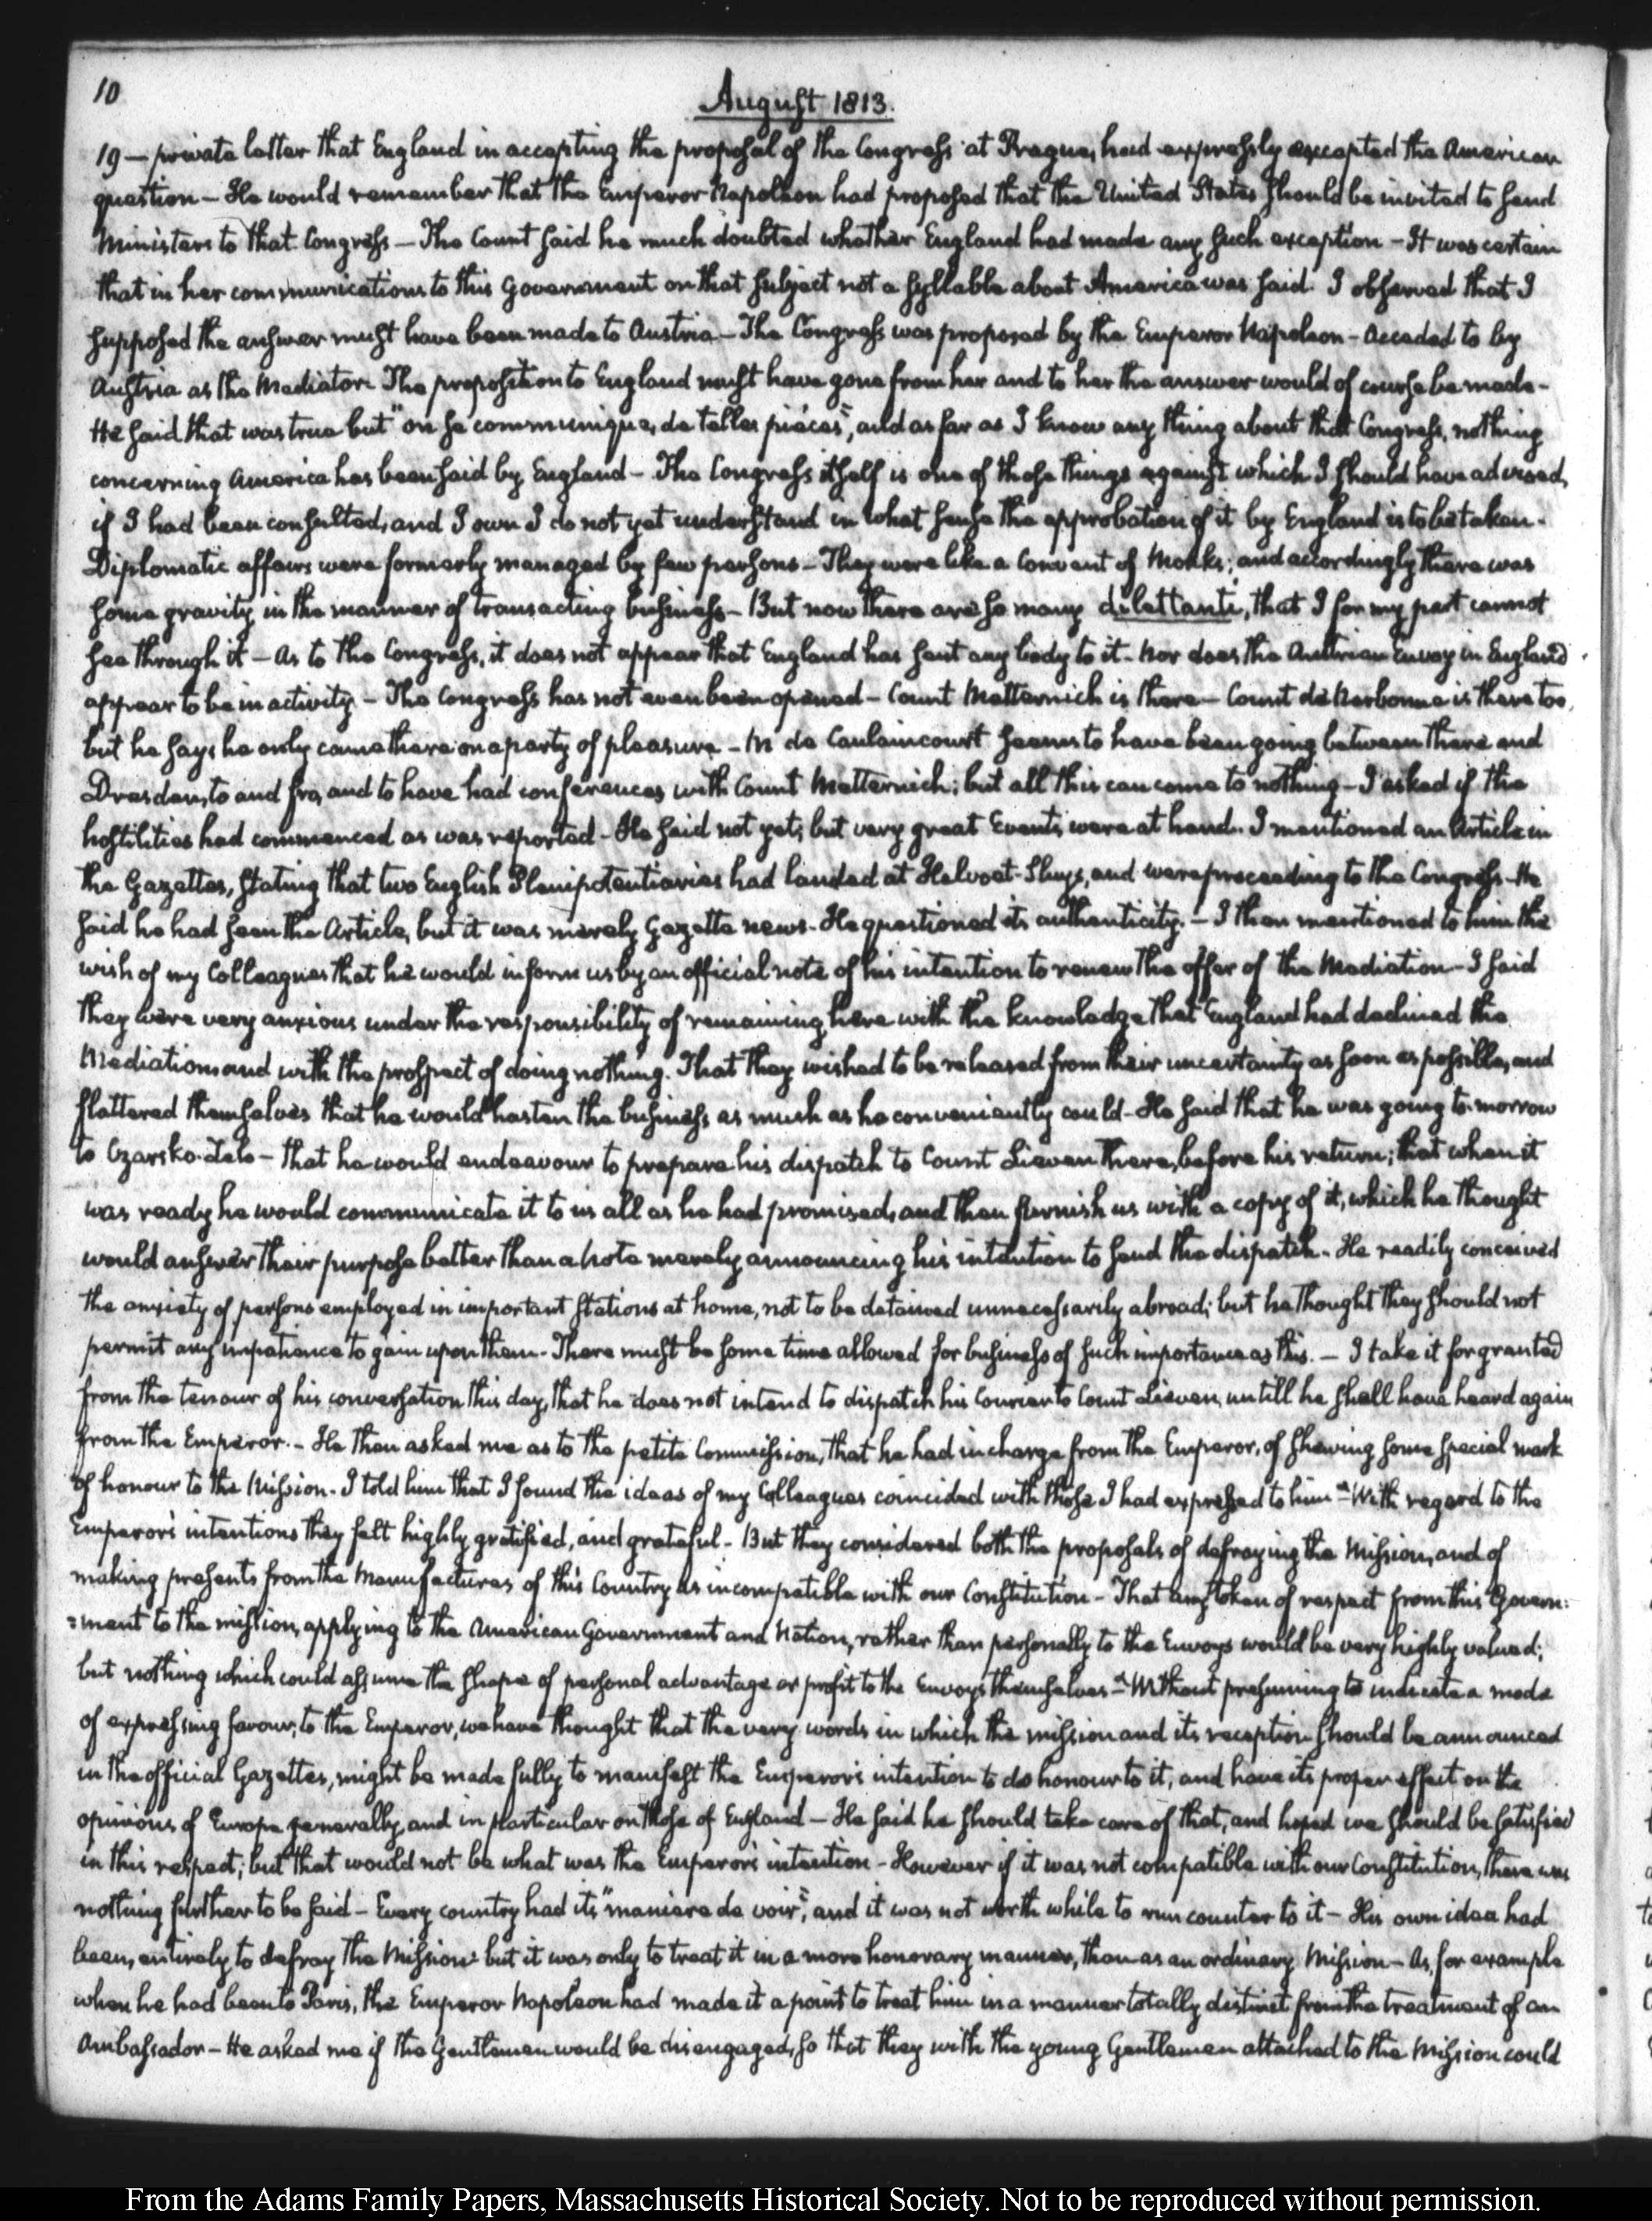 10
August 1813.
19 — private letter that England in accepting the proposal of the Congress at Prague, had expressly excepted the American
question — He would remember that the Emperor Napoleon had proposed that the United States should be invited to send
Ministers to that Congress — The Count said he much doubted whether England had made any such exception — It was certain
that in her communications to this Government on that subject not a syllable about America was said. I observed that I
supposed the answer must have been made to Austria — The Congress was proposed by the Emperor Napoleon — acceded to by
Austria as the Mediator. The proposition to England must have gone from her and to her the answer would of course be made —
He said that was true but "on se communique, de telles piéces", and as far as I know any thing about that Congress, nothing
concerning America has been said by England — The Congress itself is one of those things against which I should have advised,
if I had been consulted, and I own I do not yet understand in what sense the approbation of it by England is to be taken.
Diplomatic affairs were formerly managed by few persons — They were like a Convent of Monks; and accordingly there was
some gravity in the manner of transacting business — But now there are so many dilettanti, that I for my part cannot
see through it — As to the Congress, it does not appear that England has sent any body to it. Nor does the Austrian Envoy in England
appear to be in activity — The Congress has not even been opened — Count Metternich is there — Count de Narbonne is there too,
but he says he only came there on a party of pleasure — M de Caulaincourt seems to have been going between there and
Dresden, to and fro, and to have had conferences with Count Metternich; but all this can come to nothing — I asked if the
hostilities had commenced as was reported — He said not yet; but very great Events were at hand. I mentioned an Article in
the Gazettes, stating that two English Plenipotentiaries had landed at Helvoet-Sluys, and were proceeding to the Congress. He
said he had seen the Article, but it was merely Gazette news. He questioned its authenticity. — I then mentioned to him the
wish of my Colleagues that he would inform us by an official note of his intention to renew the offer of the Mediation — I said
they were very anxious under the responsibility of remaining here with the knowledge that England had declined the
Mediation and with the prospect of doing nothing. That they wished to be released from their uncertainty as soon as possible, and
flattered themselves that he would hasten the business as much as he conveniently could — He said that he was going to-morrow
to Czarsko-Zelo — that he would endeavour to prepare his dispatch to Count Lieven there, before his return; that when it
was ready he would communicate it to us all as he had promised, and then furnish us with a copy of it, which he thought
would answer their purpose better than a Note merely announcing his intention to send the dispatch. He readily conceived
the anxiety of persons employed in important stations at home, not to be detained unnecessarily abroad; but he thought they should not
permit any impatience to gain upon them. There must be some time allowed for business of such importance as this. — I take it for granted
from the tenour of his conversation this day, that he does not intend to dispatch his Courier to Count Lieven, untill he shall have heard again
from the Emperor. — He then asked me as to the petite Commission, that he had in charge from the Emperor, of shewing some special mark
of honour to the Mission. I told him that I found the ideas of my Colleagues coincided with those I had expressed to him — With regard to the
Emperor's intentions they felt highly gratified, and grateful — But they considered both the proposals of defraying the Mission, and of
making presents from the Manufactures of this Country as incompatible with our Constitution — That any token of respect from this Govern:
=ment to the mission, applying to the American Government and Nation, rather than personally to the Envoys would be very highly valued;
but nothing which could assume the shape of personal advantage or profit to the Envoys themselves — Without presuming to indicate a mode
of expressing favour, to the Emperor, we have thought that the very words in which the mission and its reception should be announced
in the official Gazettes, might be made fully to manifest the Emperor's intention to do honour to it, and have its proper effect on the
opinions of Europe generally, and in particular on those of England — He said he should take care of that, and hoped we should be satisfied
in this respect; but that would not be what was the Emperor's intention — However if it was not compatible with our Constitution, there was
nothing further to be said — Every country had its "maniere de voir", and it was not worth while to run counter to it — His own idea had
been, entirely to defray the Mission: but it was only to treat it in a more honorary manner, than as an ordinary Mission — As, for example
when he had been to Paris, the Emperor Napoleon had made it a point to treat him in a manner totally distinct from the treatment of an
Ambassador — He asked me if the Gentlemen would be disengaged, so that they with the young Gentlemen attached to the Mission could
From the Adams Family Papers, Massachusetts Historical Society. Not to be reproduced without permission.